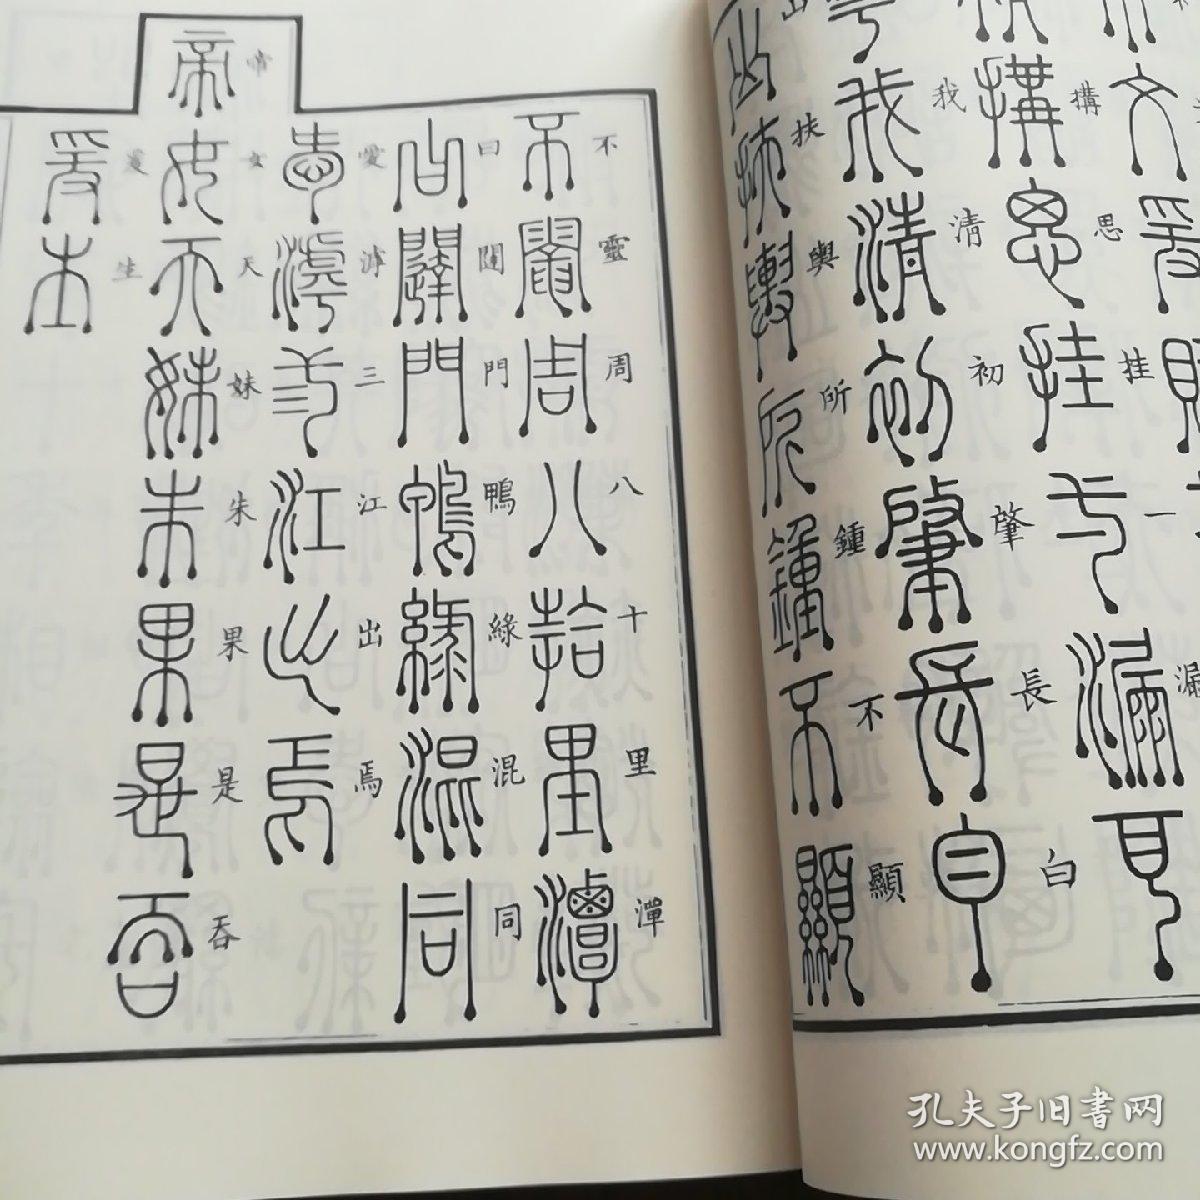 構思挂一漏
我清初肇長白
山扶輿所鍾不顯
不靈周八十里潭
曰闥門鴨綠混同
愛滹三江出焉
帝女天妹朱果是吞
爰生
孔夫子旧書网
www.kongfz.com